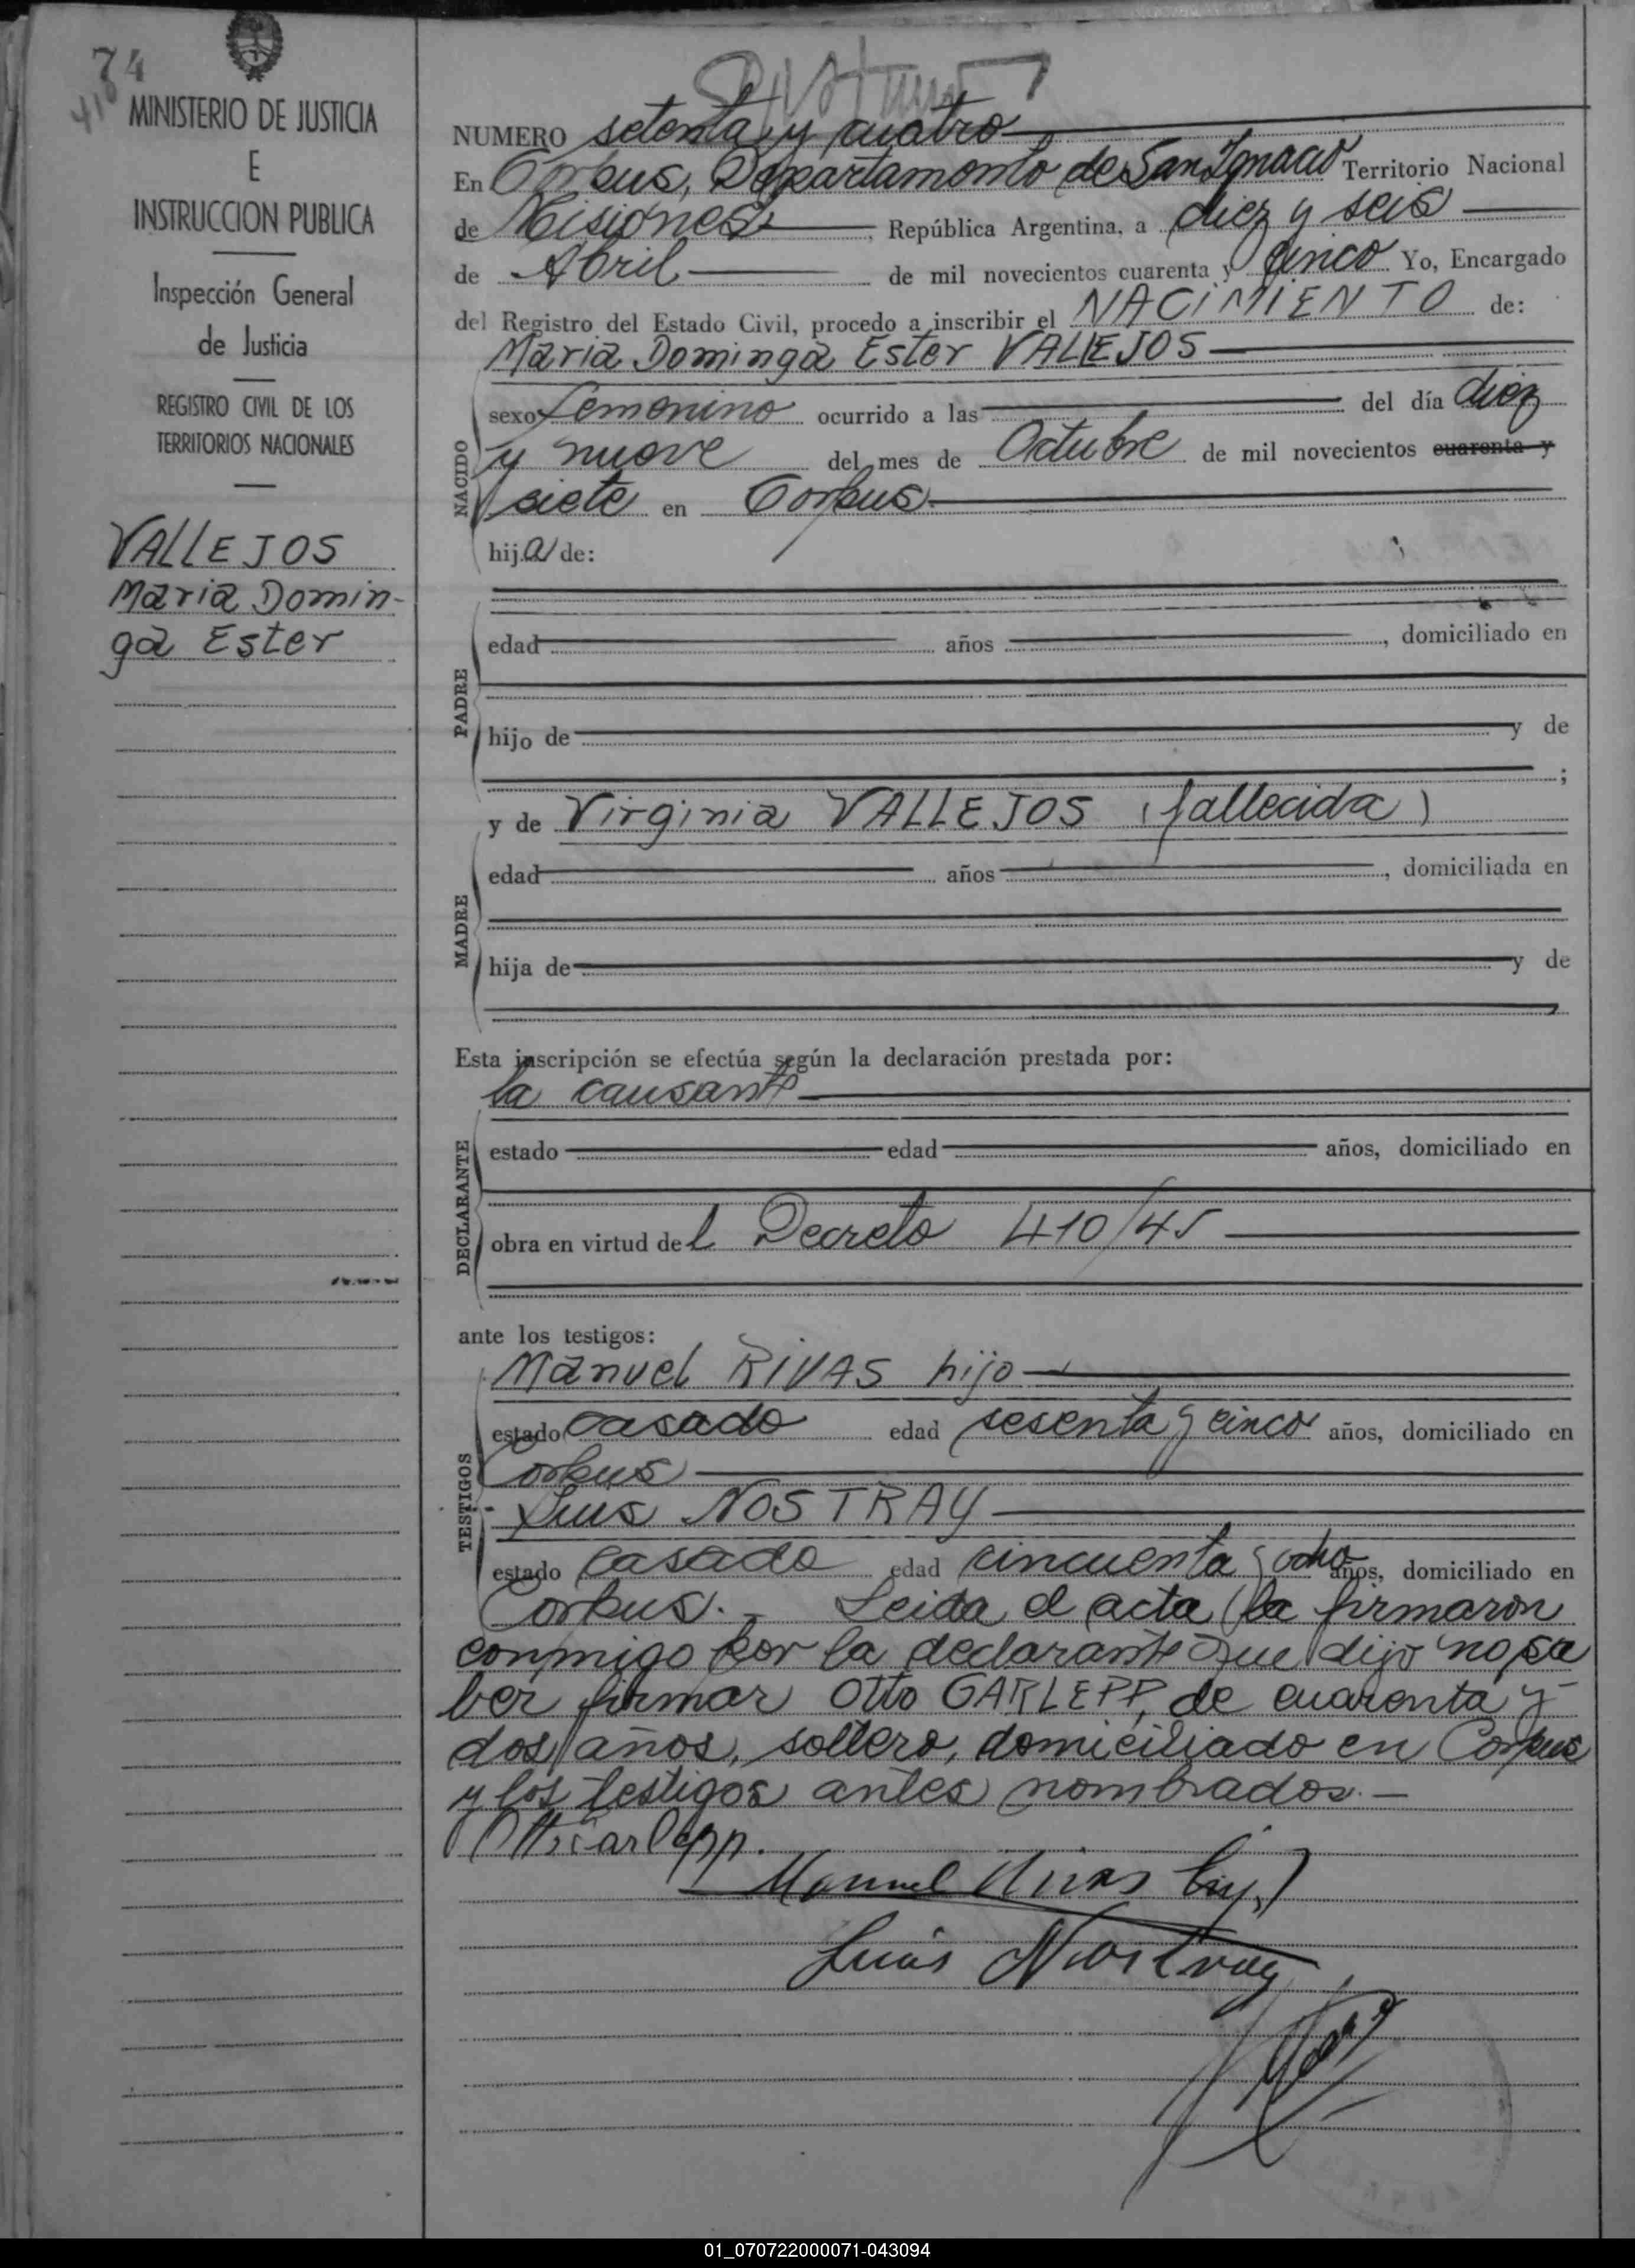 74
MINISTERIO DE JUSTICIA
E
INSTRUCCION PUBLICA
Inspección General
de Justicia
REGISTRO CIVIL DE LOS
TERRITORIOS NACIONALES
VALLEJOS
Maria Domin-
ga Ester
NUMERO setenta y cuatro
En Corpus, Departamento de San Ignacio Territorio Nacional
de Misiones, República Argentina, a diez y seis
de Abril de mil novecientos cuarenta y cinco Yo, Encargado
del Registro del Estado Civil, procedo a inscribir el NACIMIENTO de:
Maria Dominga Ester VALLEJOS
sexo femenino ocurrido a las del día diez
y nueve del mes de Octubre de mil novecientos cuarenta y
siete en Corpus
NACIDO
hija de:
edad años , domiciliado en
PADRE
hijo de y de
;
y de Virginia VALLEJOS (fallecida)
edad años , domiciliada en
MADRE
hija de y de
Esta inscripción se efectúa según la declaración prestada por:
la causante
estado edad años, domiciliado en
DECLARANTE
obra en virtud del Decreto 410/45
ante los testigos:
Manuel RIVAS hijo
estado casado edad sesenta y cinco años, domiciliado en
Corpus
TESTIGOS
Luis NOSTRAY
estado casado edad cincuenta y ocho años, domiciliado en
Corpus. - Leida el acta la firmaron
conmigo por la declarante que dijo no sa
ber firmar Otto GARLEPP, de cuarenta y
dos años, soltero, domiciliado en Corpus
y los testigos antes nombrados. -
Otto Garlepp.
Manuel Rivas hijo
Luis Nostray
01_070722000071-043094